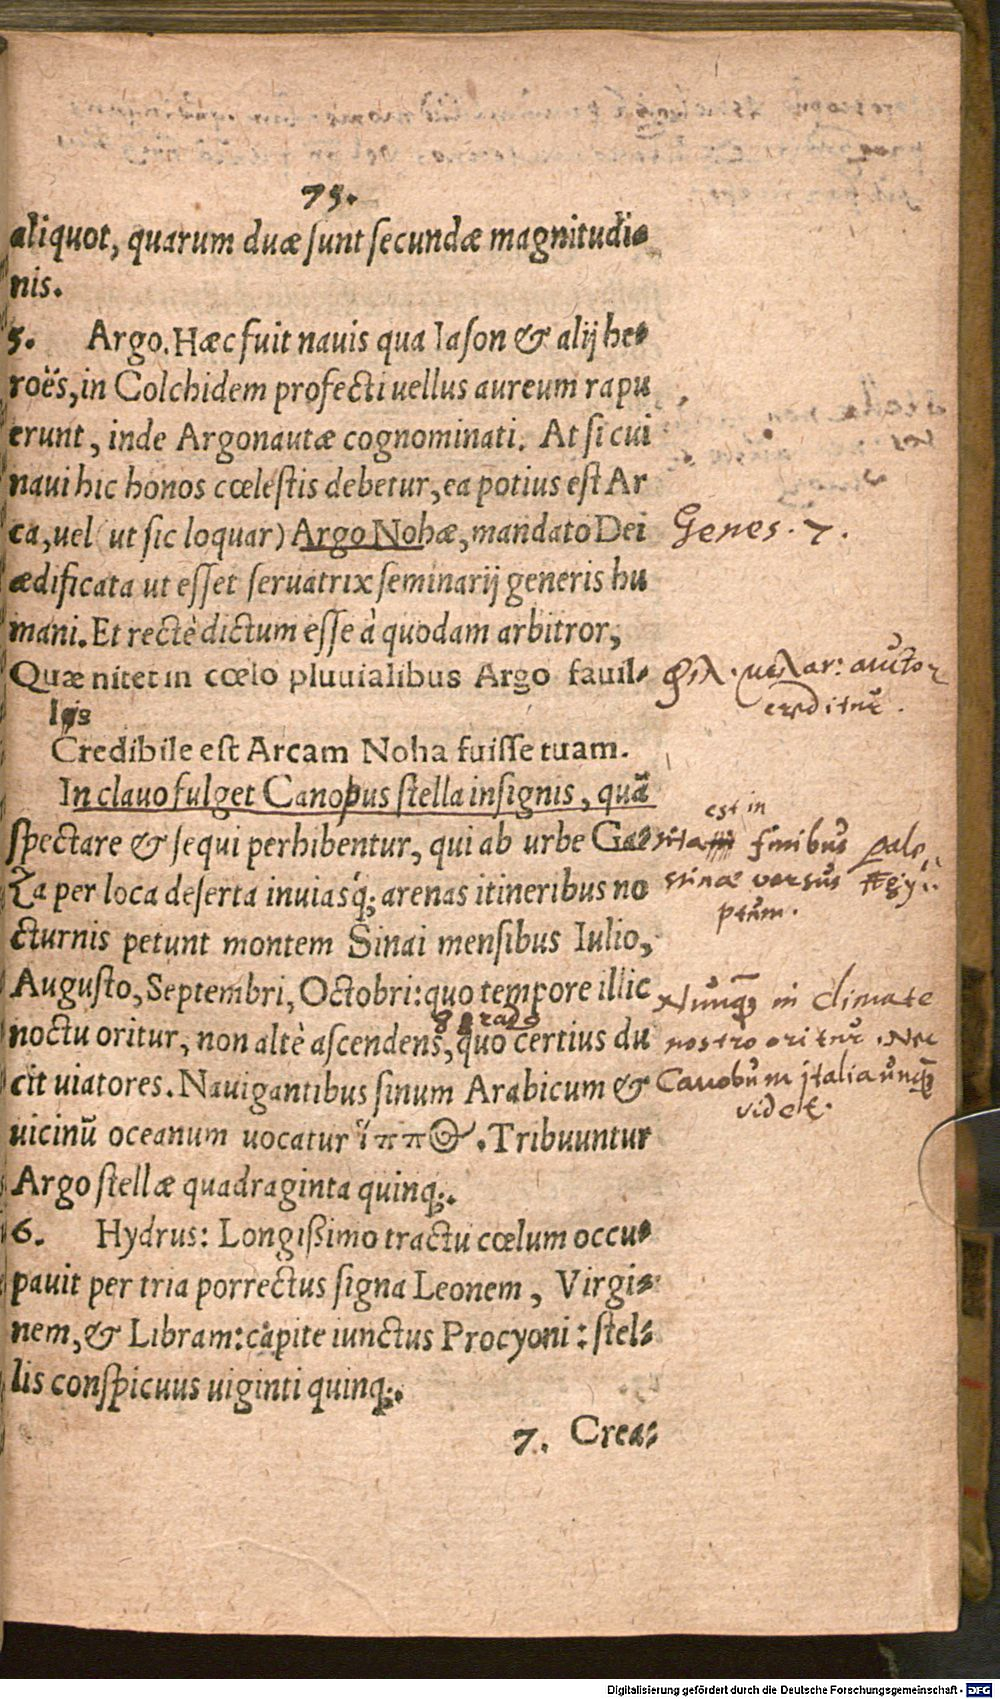 75.
aliquot, quarum duæ sunt secundæ magnitudi-
nis.
5. Argo. Hæc fuit nauis qua Iason & alij he-
roës, in Colchidem profecti uellus aureum rapu
erunt, inde Argonautæ cognominati. At si cui
naui hic honos cœlestis debetur, ea potius est Ar
ca, uel (ut sic loquar) Argo Nohæ, mandato Dei
Genes. 7.
ædificata ut esset seruatrix seminarij generis hu
mani. Et rectè dictum esse à quodam arbitror,
Quæ nitet in cœlo pluuialibus Argo fauil-
lis
auctor
creditur.
Credibile est Arcam Noha fuisse tuam.
In clauo fulget Canopus stella insignis, quã
spectare & sequi perhibentur, qui ab urbe Ga-
est in
sita finibus pale
za per loca deserta inuiasq́; arenas itineribus no
stinæ versus Ægy
ptum.
cturnis petunt montem Sinai mensibus Iulio,
Augusto, Septembri, Octobri: quo tempore illic
Nunq̃ in climate
8 grad9
noctu oritur, non altè ascendens, quo certius du
nostro oritur. Nec
cit uiatores. Nauigantibus sinum Arabicum &
Canobum italia unq̃
videt.
uicinũ oceanum uocatur ἵππος. Tribuuntur
Argo stellæ quadraginta quinq;.
6. Hydrus: Longißimo tractu cœlum occu-
pauit per tria porrectus signa Leonem, Virgi-
nem, & Libram: capite iunctus Procyoni: stel-
lis conspicuus uiginti quinq;.
7. Crea-
Digitalisierung gefördert durch die Deutsche Forschungsgemeinschaft - DFG